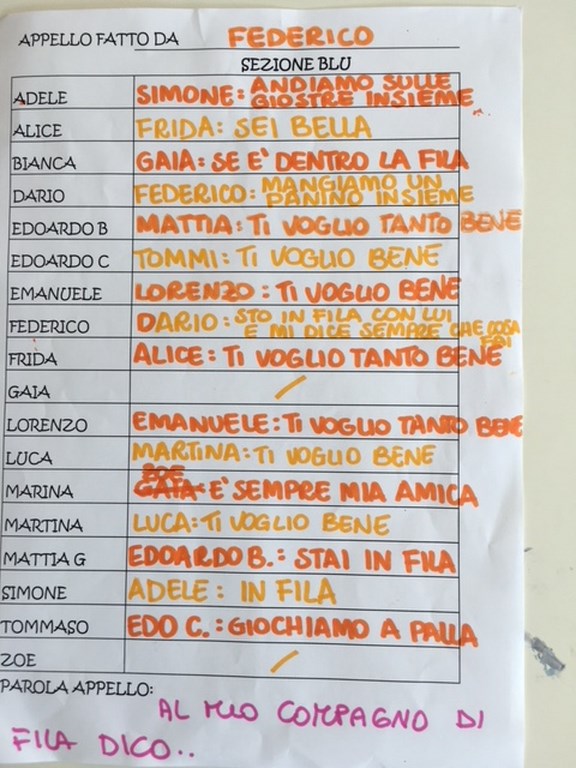 APPELLO FATTO DA FEDERICO
SEZIONE BLU
ADELE SIMONE: ANDIAMO SULLE
GIOSTRE INSIEME
ALICE FRIDA: SEI BELLA
BIANCA GAIA: SE E' DENTRO LA FILA
DARIO FEDERICO: MANGIAMO UN
PANINO INSIEME
EDOARDO B MATTIA: TI VOGLIO TANTO BENE
EDOARDO C TOMMI: TI VOGLIO BENE
EMANUELE LORENZO: TI VOGLIO BENE
FEDERICO DARIO: STO IN FILA CON LUI
E MI DICE SEMPRE CHE COSA
FAI
FRIDA ALICE: TI VOGLIO TANTO BENE
GAIA /
LORENZO EMANUELE: TI VOGLIO TANTO BENE
LUCA MARTINA: TI VOGLIO BENE
ZOE
MARINA GAIA E' SEMPRE MIA AMICA
MARTINA LUCA: TI VOGLIO BENE
MATTIA G EDOARDO B.: STAI IN FILA
SIMONE ADELE: IN FILA
TOMMASO EDO C.: GIOCHIAMO A PALLA
ZOE /
PAROLA APPELLO:
AL MIO COMPAGNO DI
FILA DICO..